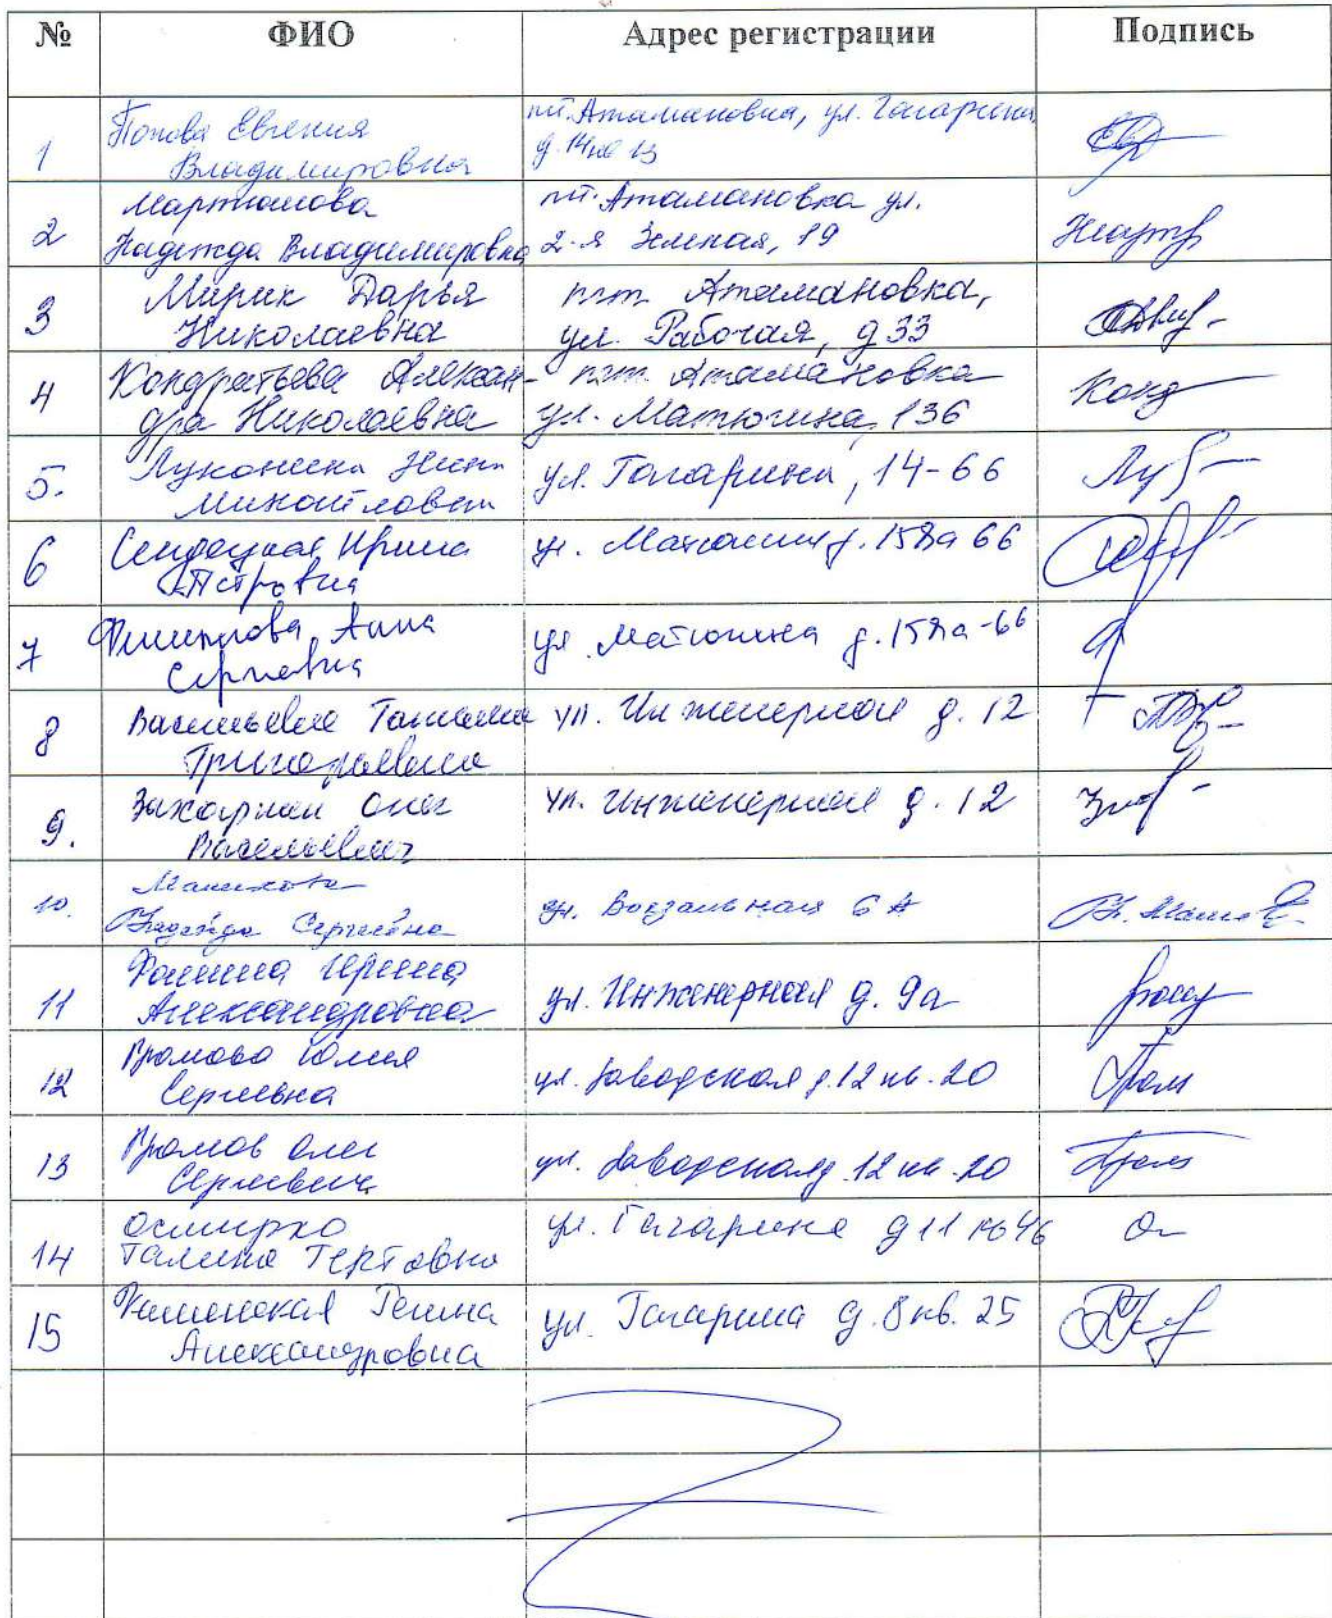 № ФИО Адрес регистрации Подпись
1 Попова Евгения
Владимировна
пгт. Атамановка, ул. Гагарина,
д. 14 кв 13
2 Мартюшова
Надежда Владимировна
пгт. Атамановка ул.
2-я Земная, 19
3 Мирик Дарья
Николаевна
пгт Атамановка,
ул. Рабочая, д 33
4 Кондратьева Алексан-
дра Николаевна
пгт. Атамановка
ул. Матюгина, 136
Конд
5. Луконина Нина
Михайловна
ул. Гагарина, 14-66
6 Ирина
Петровна
ул. Матюгина д. 158а 66
7 Филиппова Анна
Сергеевна
ул. Матюгина д. 158а-66
8 Васильева Татьяна
Григорьевна
ул. Инженерная д. 12
9. Захарин Олег
Васильевич
ул. Инженерная д. 12
10. Машкова
Надежда Сергеевна
ул. Вокзальная 6 А
11 Фомина Ирина
Александровна
ул. Инженерная д. 9а
12 Громова Юлия
Сергеевна
ул. Заводская д. 12 кв. 20
Гром
13 Громов Олег
Сергеевич
ул. Заводская д. 12 кв. 20
14 Осмирко
Галина
ул. Гагарина д 11 кв 46
15 Регина
Александровна
ул. Гагарина д. 8 кв. 25